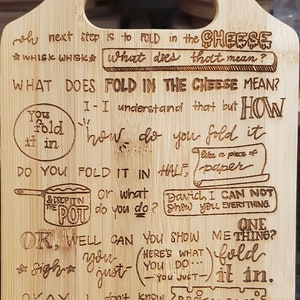 oh next step is to FOLD in the CHEESE
*WHISK WHISK* What does that mean?
WHAT DOES FOLD IN THE CHEESE MEAN?
I-I understand that but HOW
You fold it in
how do you fold it
DO YOU FOLD IT IN HALF, like a piece of paper
& DROP IT IN THE POT
or what do you do?
David, I CAN NOT show you EVERYTHING.
OK, WELL CAN YOU SHOW ME ONE THING?
*sigh* you just (HERE'S WHAT YOU DO... —YOU JUST—) fold it in.
OKAY don't know